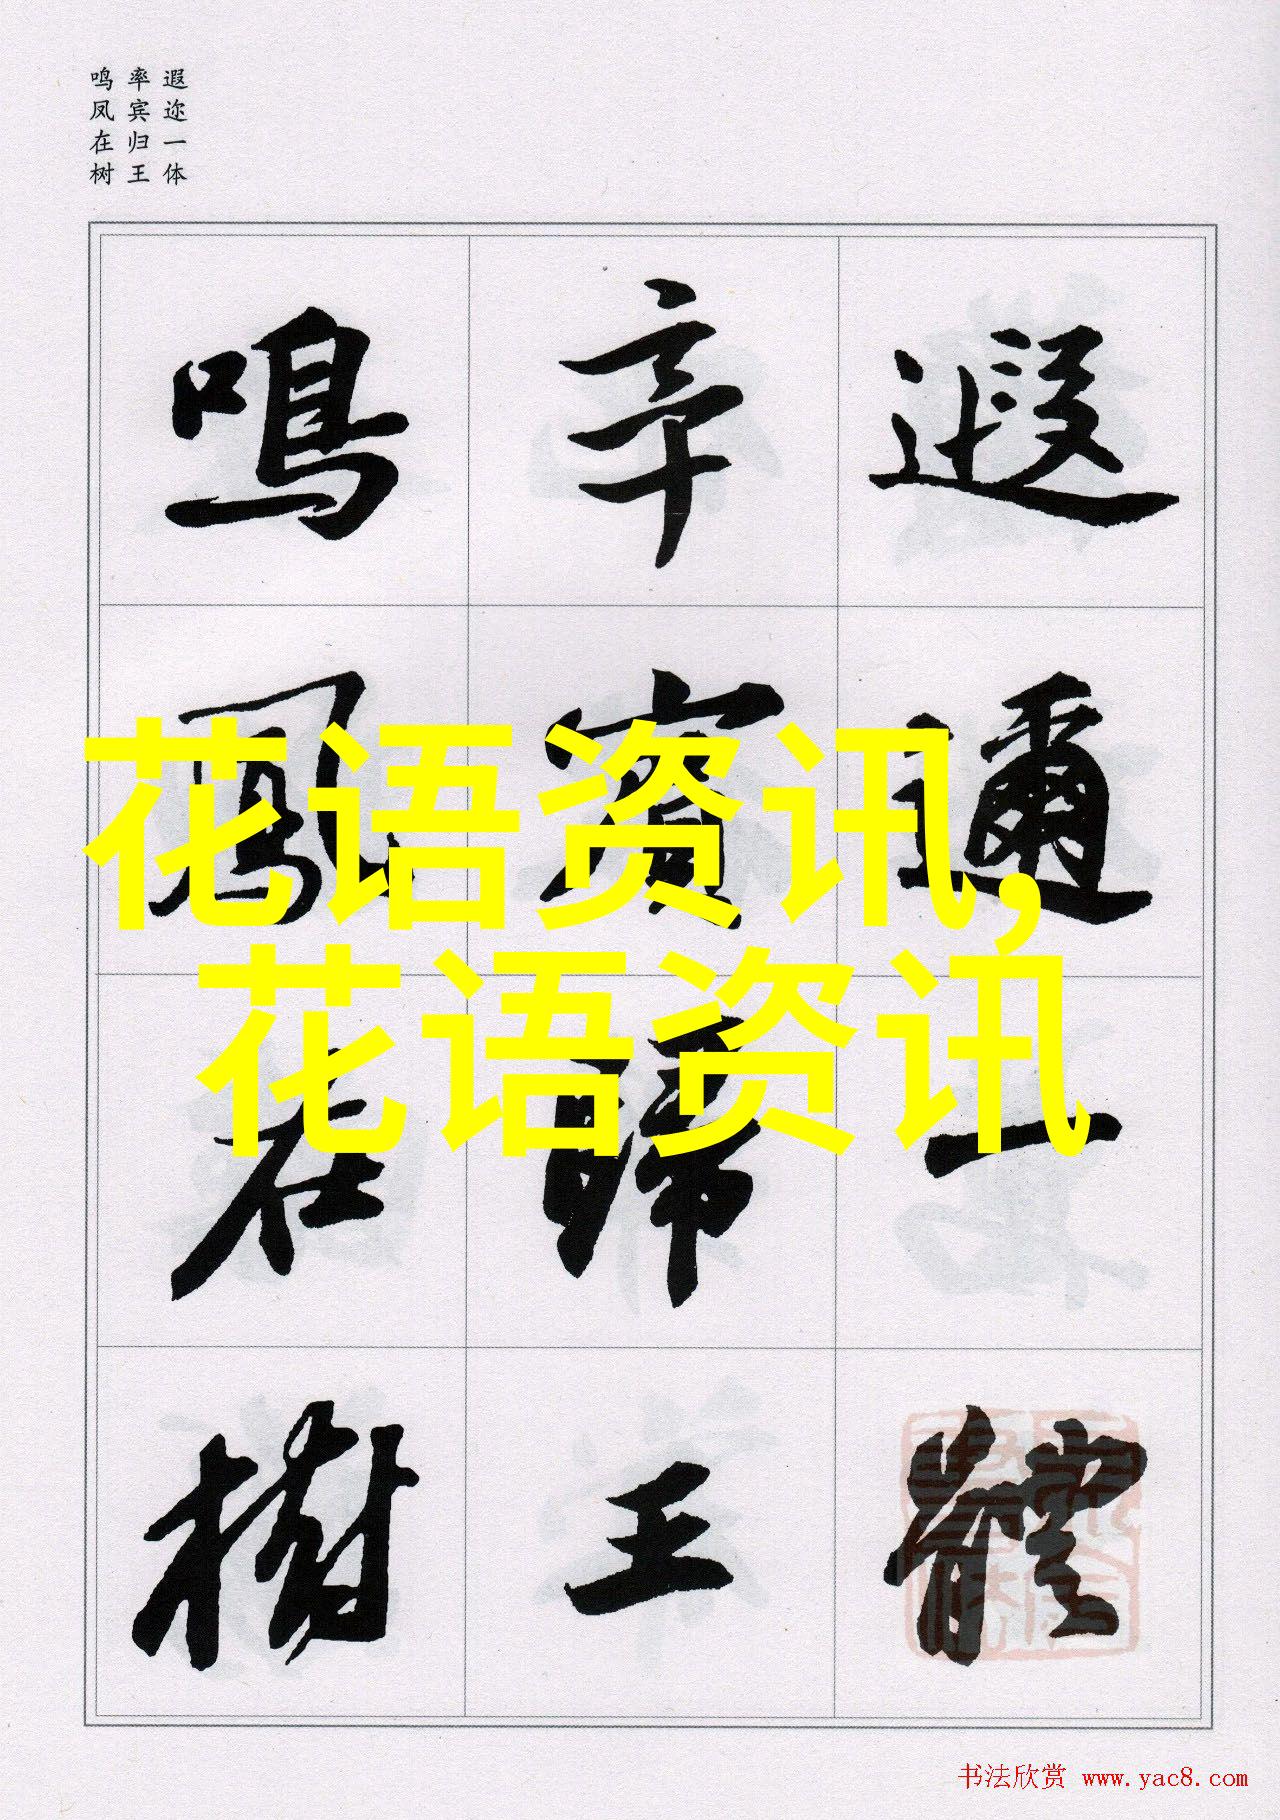 遐迩一体
率宾归王
鸣凤在树
遐邇一體
率賓歸王
鳴鳳在樹
花语资讯,
花语资讯
书法欣赏 www.yac8.com